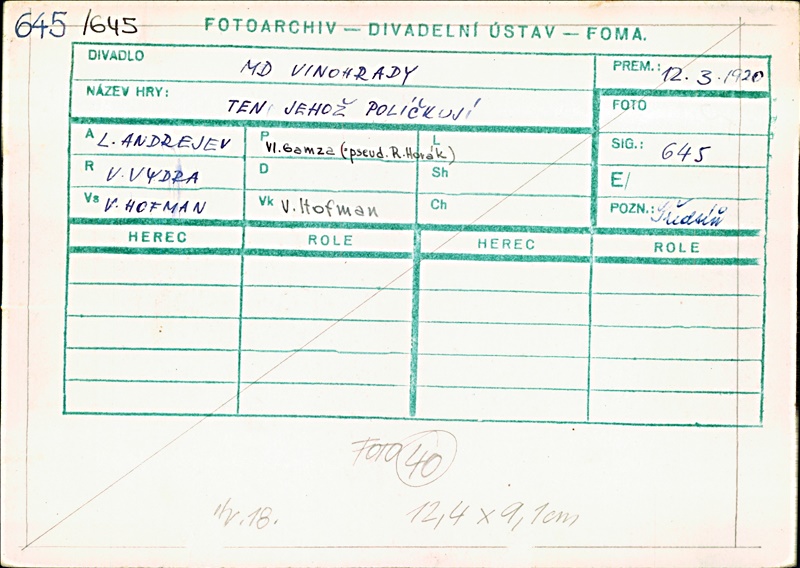 645 /645
FOTOARCHIV — DIVADELNÍ ÚSTAV — FOMA.
DIVADLO MD VINOHRADY
PREM.: 12. 3. 1920
NÁZEV HRY: TEN, JEHOŽ POLÍČKUJÍ
FOTO
A L. ANDREJEV
P Vl. Gamza (pseud. R. Horák)
L
SIG.: 645
R V. VYDRA
D
Sh
E/
Vs V. HOFMAN
Vk V. Hofman
Ch
POZN.:
HEREC ROLE HEREC ROLE
Foto 40
18. 12,4 x 9,1cm